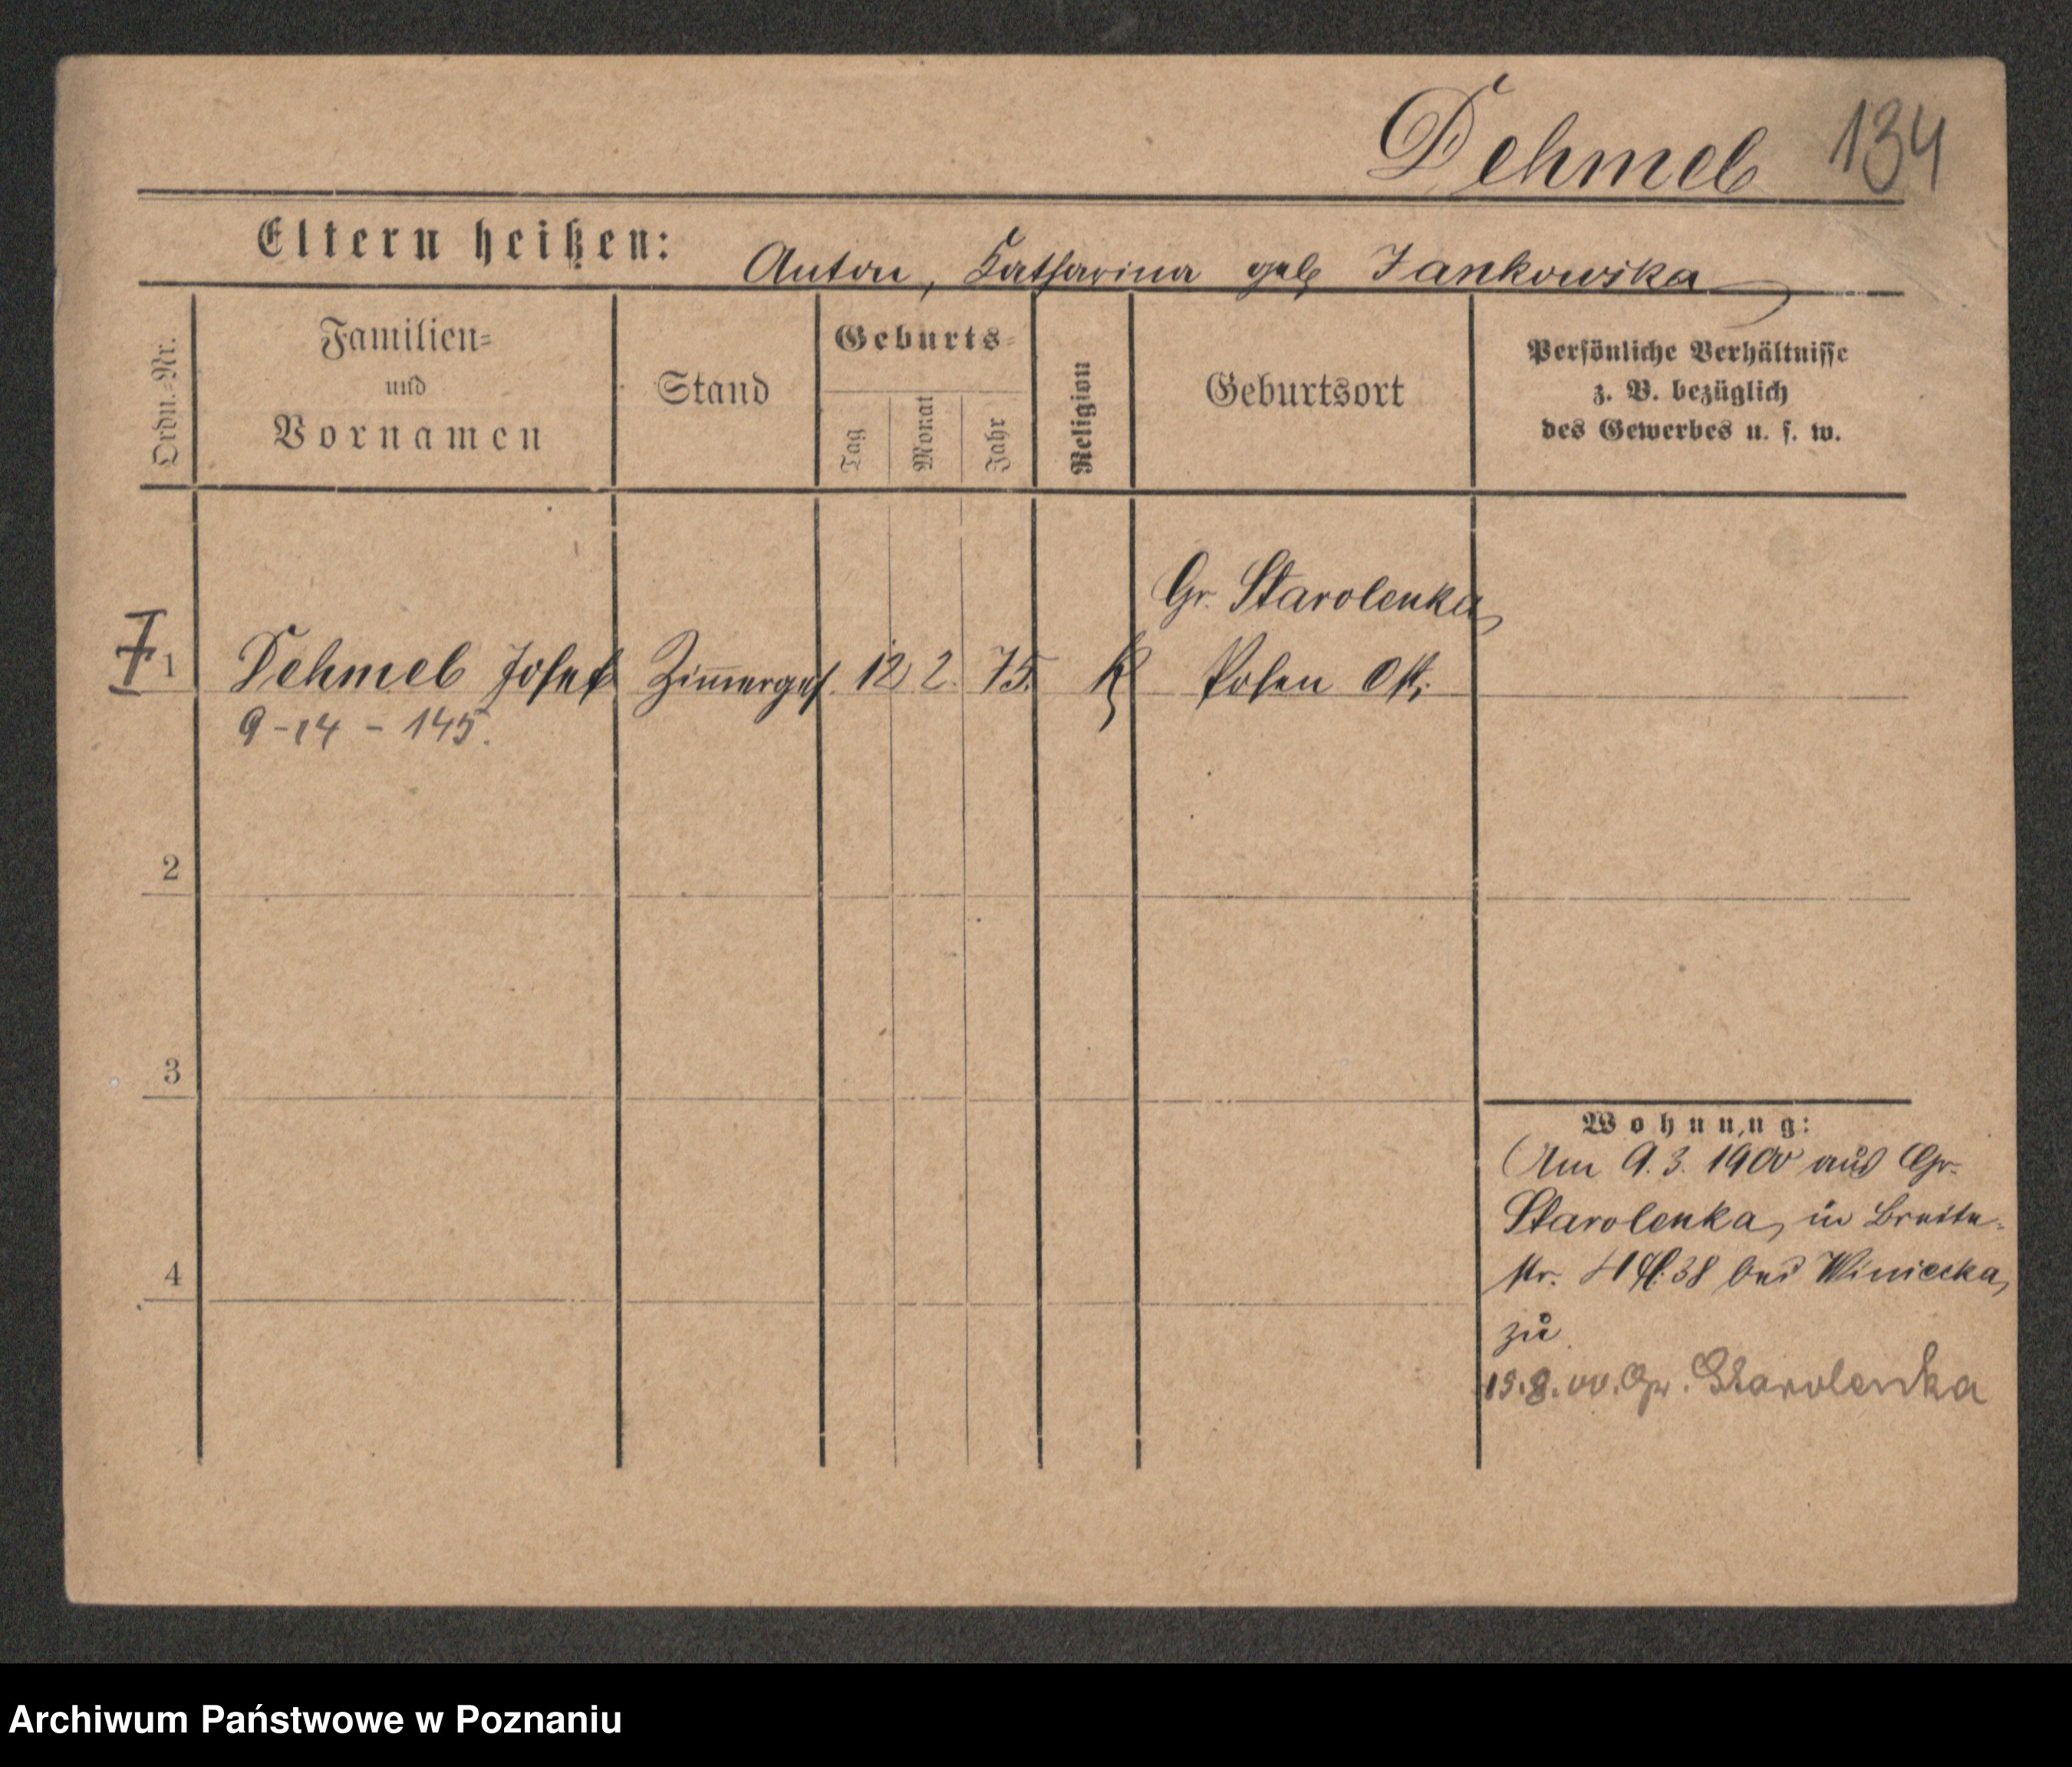 Dehmel 134
Eltern heißen: Anton, Katharina geb Jankowska
Ordn.-Nr.
Familien-
und
Vornamen
Stand
Geburts-
Tag
Monat
Jahr
Religion
Geburtsort
Persönliche Verhältnisse
z. B. bezüglich
des Gewerbes u. s. w.
Gr. Starolenka
1 Dehmel Josef Zimmerges. 12 2. 75. K Posen Ost.
9-14 - 145.
2
3
4
Wohnung:
Am 9.3. 1900 aus Gr.
Starolenka, in Breite-
str. 38 bei Winiecka,
zu
15.8.00. Gr. Starolenka
Archiwum Państwowe w Poznaniu